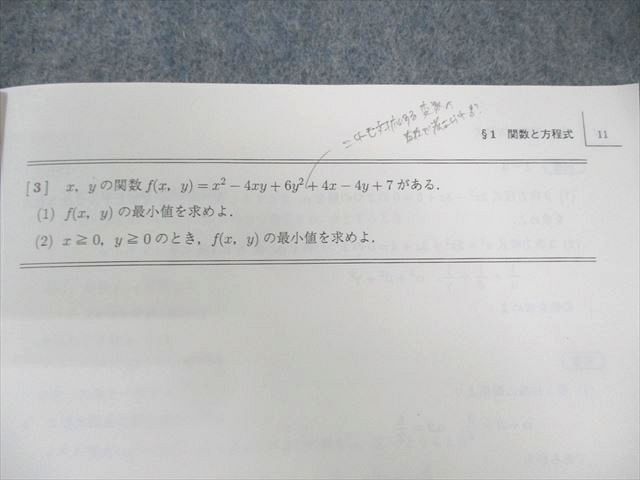 §1 関数と方程式 11
[3] x, yの関数 f(x, y) = x² − 4xy + 6y² + 4x − 4y + 7 がある.
(1) f(x, y) の最小値を求めよ.
(2) x ≧ 0, y ≧ 0 のとき, f(x, y) の最小値を求めよ.